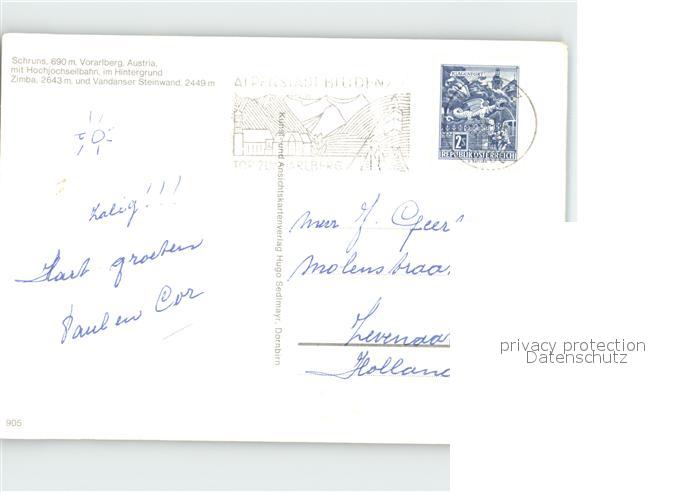 Schruns, 690 m, Vorarlberg, Austria,
mit Hochjochseilbahn, im Hintergrund
Zimba, 2643 m, und Vandanser Steinwand, 2449 m
ALPENSTADT BLUDENZ
TOR ZUM ARLBERG
KLAGENFURT
2
REPUBLIK ÖSTERREICH
zalig!!!
Hart. groeten
Paul en Cor
Kunst- und Ansichtskartenverlag Hugo Sedlmayr, Dornbirn
Molenstraa
Zevenaa
Hollan
905
privacy protection
Datenschutz